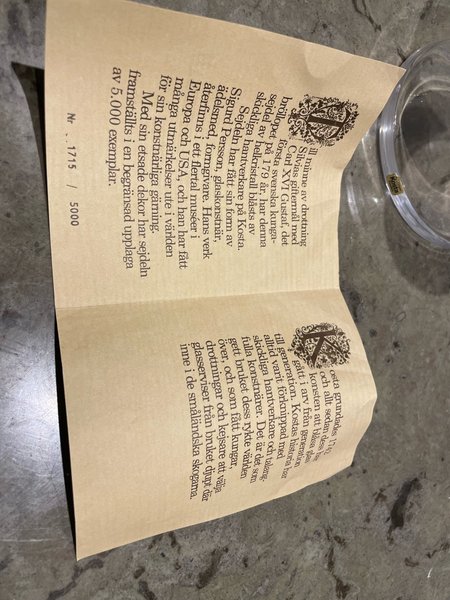 Till minne av drottning
Silvias giftermål med
Carl XVI Gustaf, det
första svenska kunga-
bröllopet på 179 år, har denna
sejdel av helkristall blåsts av
skickliga hantverkare på Kosta.
Sejdeln har fått sin form av
Sigurd Persson, glaskonstnär,
ädelsmed, formgivare. Hans verk
återfinns i ett flertal museer i
Europa och USA, och han har fått
många utmärkelser ute i världen
för sin konstnärliga gärning.
Med sin etsade dekor har sejdeln
framställts i en begränsad upplaga
av 5.000 exemplar.
Nr ..1715 / 5000
Kosta grundades 1742
och allt sedan dess har
konsten att blåsa glas
gått i arv från generation
till generation. Kostas historia har
alltid varit förknippad med
skickliga hantverkare och talang-
fulla konstnärer. Det är det som
gett bruket dess rykte världen
över, och som fått kungar,
drottningar och kejsare att välja
glasserviser från bruket djupt där
inne i de småländska skogarna.